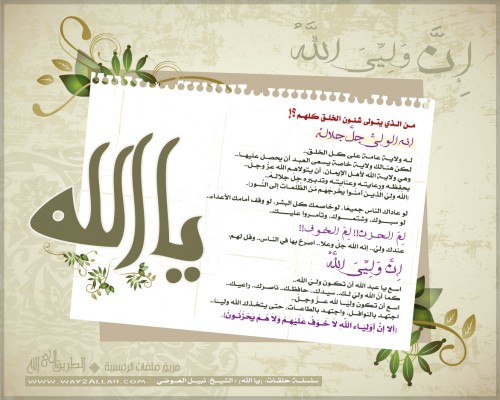 إِنَّ وَلِيِّيَ اللَّهُ
يا الله
من الذي يتولى شئون الخلق كلهم؟!
إنه الولىُّ جلَّ جلاله
له ولاية عامة على كل الخلق..
لكن هنالك ولاية خاصة يسعى العبد أن يحصل عليها..
وهي ولاية الله لأهل الإيمان، أن يتولاهم الله عزَّ وجلَّ..
بحفظله ورعايته وعنايته وتدبيره جل جلاله..
(الله وليُّ الذين آمنوا يخرجهم من الظلمات إلى النور)
لو عاداك الناس جميعًا، لو خاصمك كل البشر، لو وقف أمامك الأعداء..
لو سبوك.. وشتموك.. وتآمروا عليك..
لِمَ الحزن!! لِمَ الخوف!!
عندك وليّ.. إنه الله جلَّ وعلا.. اصرخ بها في الناس.. وقل لهم
إِنَّ وَلِيِّيَ اللَّهُ
اسع يا عبد الله أن تكون وليّ الله..
كما أن الله ولي لك.. سيدك.. حافظك.. ناصرك.. راعيك..
اسع أن تكون وليًا لله عزَّ وجلَّ..
اجتهد بالنوافل.. واجتهد بالطاعات.. حتى يتخذك الله وليًا..
(ألا إنَّ أولياء الله لا خوف عليهم ولا هم يحزنون)
سلسلة حلقات: (يا الله) الشيخ: نبيل العوضي
فريق ملفات الرئيسية
الطريق إلى الله
WWW.WAY2ALLAH.COM